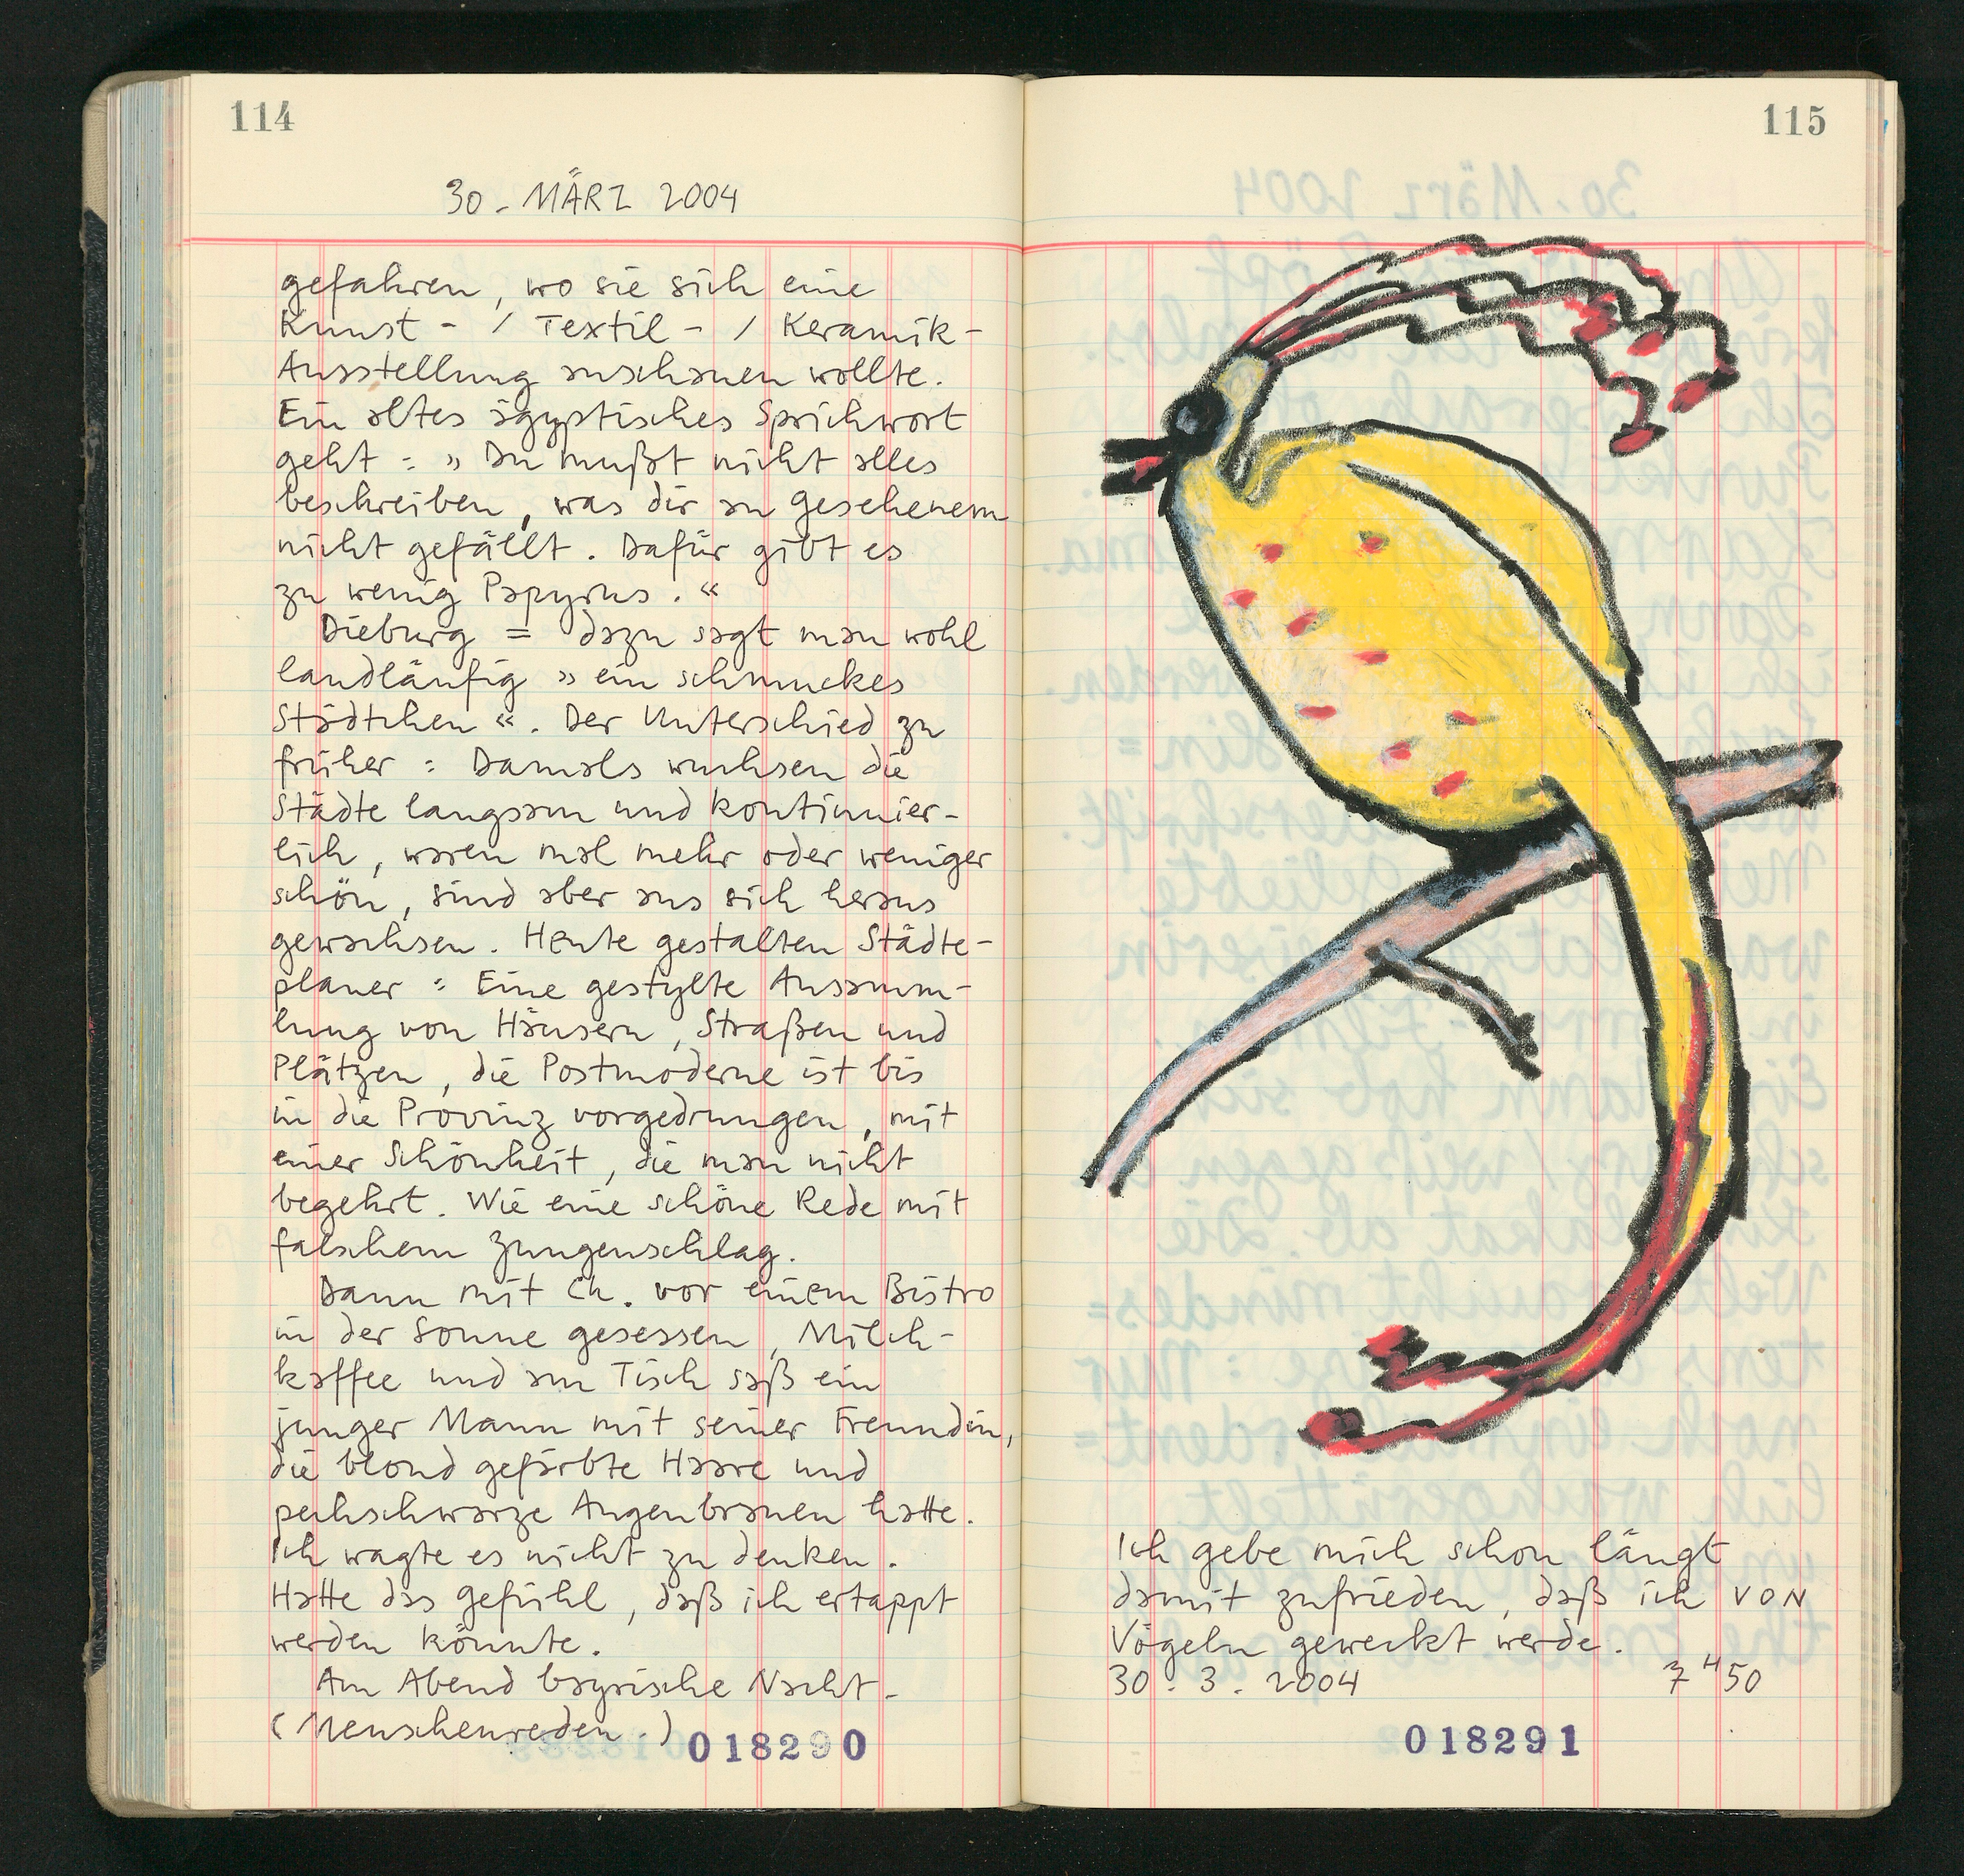 114
30. MÄRZ 2004
gefahren, wo sie sich eine
Kunst- / Textil- / Keramik-
Ausstellung anschauen wollte.
Ein altes ägyptisches Sprichwort
geht: »Du mußt nicht alles
beschreiben, was dir an Gesehenem
nicht gefällt. Dafür gibt es
zu wenig Papyrus.«
Dieburg = dazu sagt man wohl
landläufig »ein schmuckes
Städtchen«. Der Unterschied zu
früher: Damals wuchsen die
Städte langsam und kontinuier-
lich, waren mal mehr oder weniger
schön, sind aber aus sich heraus
gewachsen. Heute gestalten Städte-
planer: Eine gestylte Ansamm-
lung von Häusern, Straßen und
Plätzen, die Postmoderne ist bis
in die Provinz vorgedrungen, mit
einer Schönheit, die man nicht
begehrt. Wie eine schöne Rede mit
falschem Zungenschlag.
Dann mit Ch. vor einem Bistro
in der Sonne gesessen, Milch-
kaffee und am Tisch saß ein
junger Mann mit seiner Freundin,
die blond gefärbte Haare und
pechschwarze Augenbrauen hatte.
Ich wagte es nicht zu denken.
Hatte das Gefühl, daß ich ertappt
werden könnte.
Am Abend bayrische Nacht-
(Menschenreden.)
018290
115
Ich gebe mich schon längt
damit zufrieden, daß ich VON
Vögeln geweckt werde.
30. 3. 2004 7H50
018291